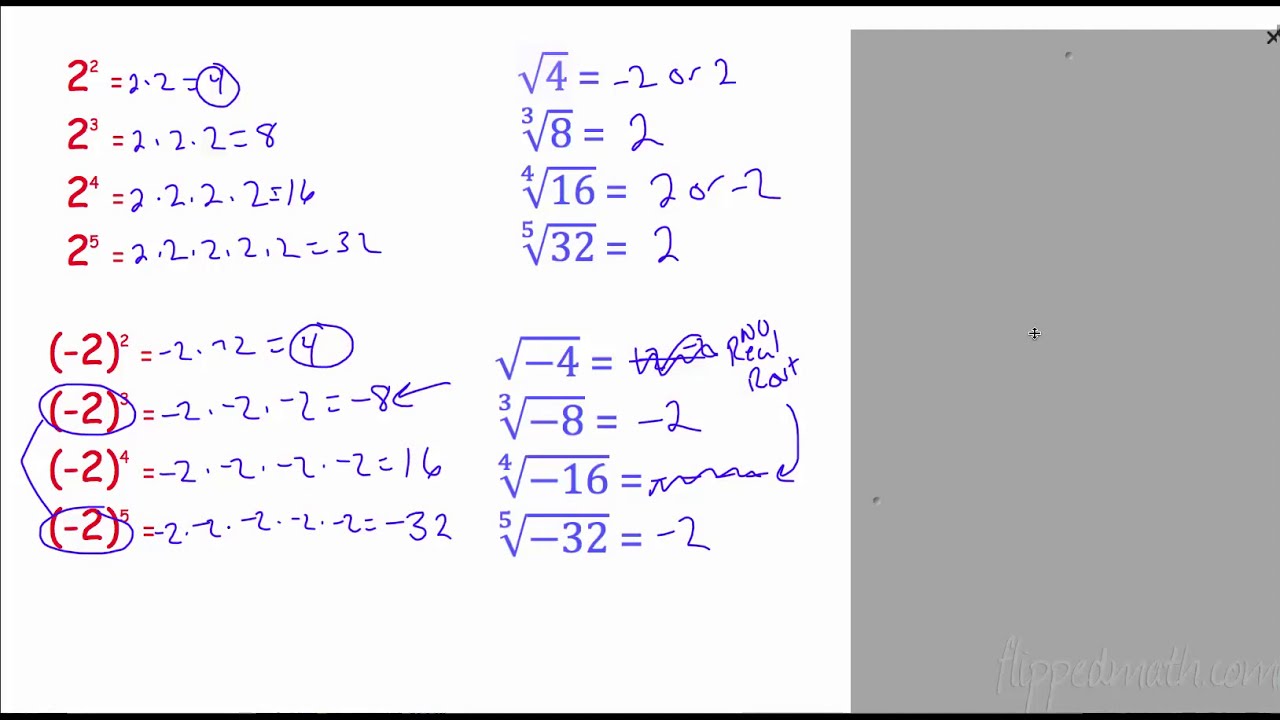 2² = 2·2 = 4
2³ = 2·2·2 = 8
2⁴ = 2·2·2·2 = 16
2⁵ = 2·2·2·2·2 = 32
(-2)² = -2·-2 = 4
(-2)³ = -2·-2·-2 = -8
(-2)⁴ = -2·-2·-2·-2 = 16
(-2)⁵ = -2·-2·-2·-2·-2 = -32
√4 = -2 or 2
³√8 = 2
⁴√16 = 2 or -2
⁵√32 = 2
√-4 = No
Real
Root
³√-8 = -2
⁴√-16 =
⁵√-32 = -2
flippedmath.com